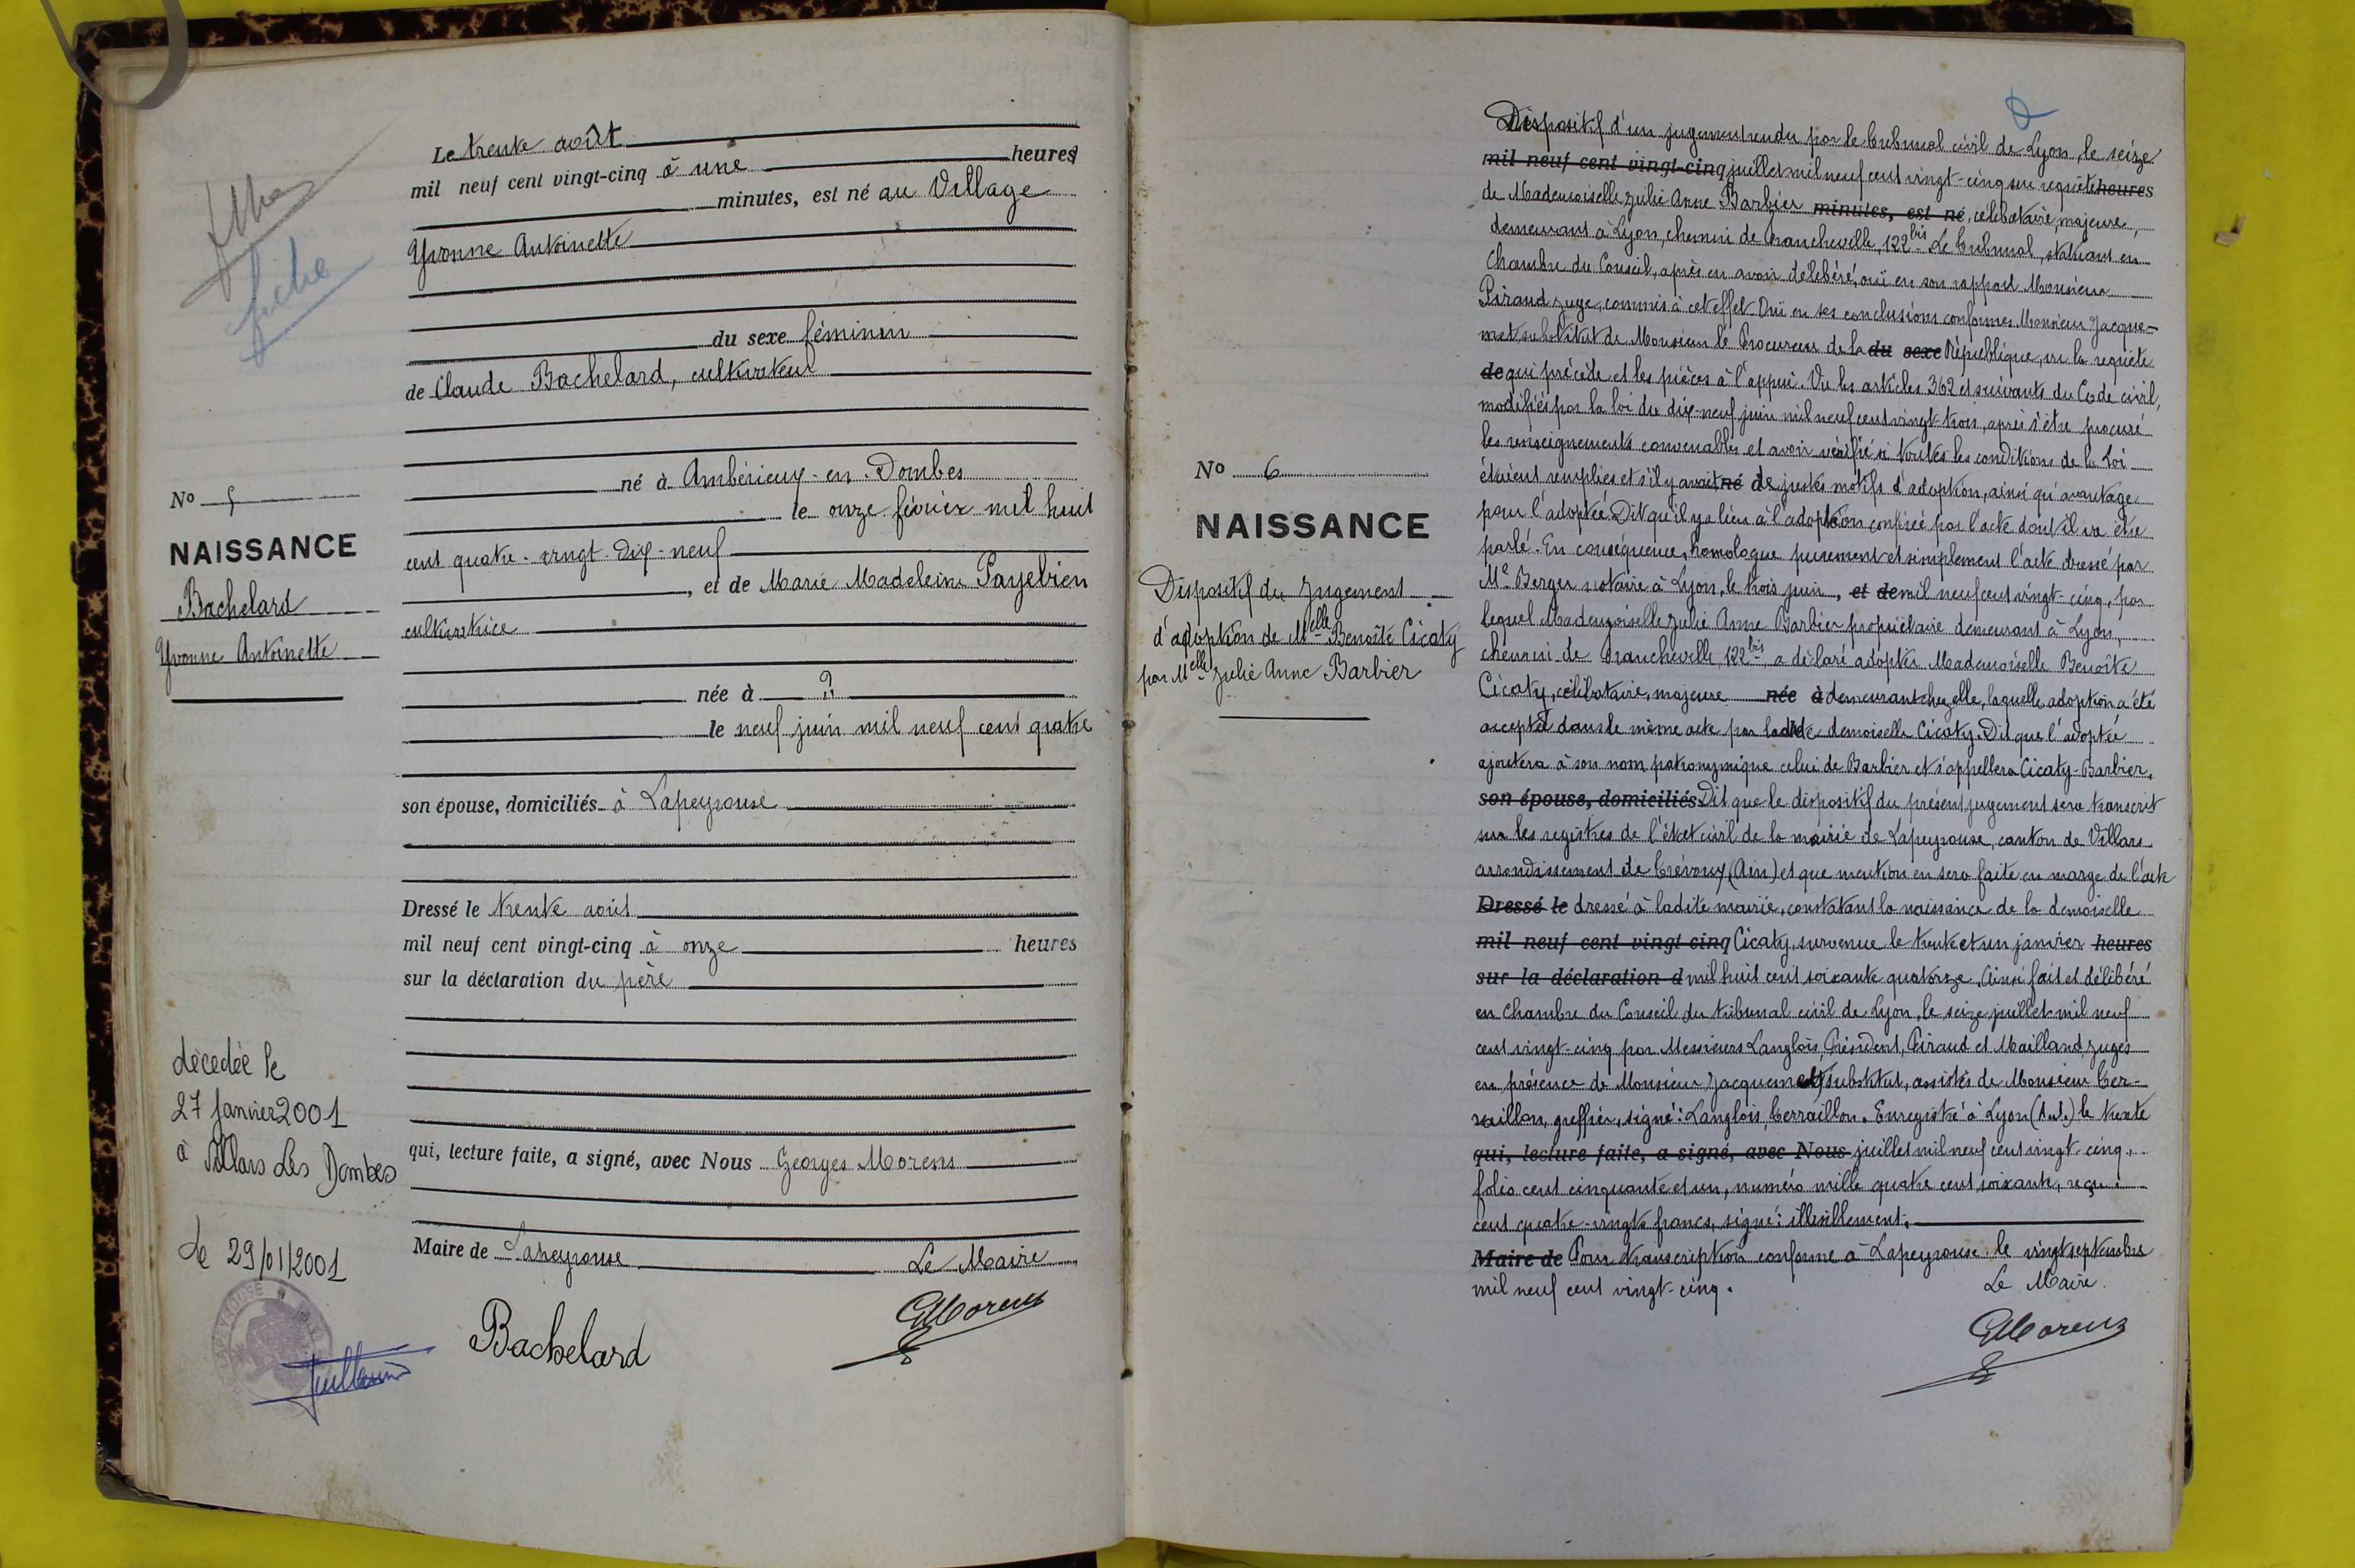 fiche
No 5
NAISSANCE
Bachelard
Yvonne Antoinette
décédée le
27 Janvier 2001
à Villars Les Dombes
Le 29/01/2001
Le trente août
mil neuf cent vingt-cinq à une heures
minutes, est né au Village
Yvonne Antoinette
du sexe féminin
de Claude Bachelard, cultivateur
né à Ambérieux-en-Dombes
le onze février mil huit
cent quatre-vingt-dix-neuf
, et de Marie Madeleine Payebien
cultivatrice
née à ?
le neuf juin mil neuf cent quatre
son épouse, domiciliés à Lapeyrouse
Dressé le trente août
mil neuf cent vingt-cinq à onze heures
sur la déclaration du père
qui, lecture faite, a signé, avec Nous Georges Morens
Maire de Lapeyrouse Le Maire
Bachelard
GMorens
No 6
NAISSANCE
Dispositif du Jugement
d'adoption de Melle Benoîte Cicaty
par Melle Julie Anne Barbier
Dispositif d'un jugement rendu par le Tribunal civil de Lyon, le seize
mil neuf cent vingt-cinq juillet mil neuf cent vingt-cinq sur requête heures
de Mademoiselle Julie Anne Barbier minutes, est né, célibataire, majeure,
demeurant à Lyon, chemin de Francheville, 122bis Le Tribunal, statuant en
Chambre du Conseil, après en avoir délibéré, ouï en son rapport Monsieur
Piraud juge, commis à cet effet. Ouï en ses conclusions conformes Monsieur Jacque-
met substitut de Monsieur le Procureur de la du sexe République, vu la requête
de qui précède et les pièces à l'appui. Vu les articles 362 et suivants du Code civil,
modifiés par la loi du dix-neuf juin mil neuf cent vingt-trois, après s'être procuré
les renseignements convenables et avoir vérifié si toutes les conditions de la loi
étaient remplies et s'il y avait né de justes motifs d'adoption, ainsi qu'avantage
pour l'adoptée. Dit qu'il y a lieu à l'adoption par l'acte dont il va être
parlé. En conséquence, homologue purement et simplement l'acte dressé par
Me Berger notaire à Lyon, le trois juin, et de mil neuf cent vingt-cinq, par
lequel Mademoiselle Julie Anne Barbier propriétaire demeurant à Lyon,
chemin de Francheville, 122bis, a déclaré adopter Mademoiselle Benoîte
Cicaty, célibataire, majeure née à demeurant chez elle, laquelle adoption a été
acceptée dans le même acte par ladite demoiselle Cicaty. Dit que l'adoptée
ajoutera à son nom patronymique celui de Barbier et s'appellera Cicaty-Barbier.
son épouse, domiciliés Dit que le dispositif du présent jugement sera transcrit
sur les registres de l'état civil de la mairie de Lapeyrouse, canton de Villars
arrondissement de Trévoux (Ain) et que mention en sera faite en marge de l'acte
Dressé le dressé à ladite mairie, constatant la naissance de la demoiselle
mil neuf cent vingt cinq Cicaty, survenue le trente et un janvier heures
sur la déclaration d mil huit cent soixante quatorze. Ainsi fait et délibéré
en Chambre du Conseil du tribunal civil de Lyon, le seize juillet mil neuf
cent vingt-cinq par Messieurs Langlois, Président, Piraud et Mailland, juges
en présence de Monsieur Jacquemet, substitut, assistés de Monsieur Cer-
raillon, greffier, signé: Langlois, Cerraillon. Enregistré à Lyon (A.J.) le trente
qui, lecture faite, a signé, avec Nous juillet mil neuf cent vingt-cinq,
folio cent cinquante et un, numéro mille quatre cent soixante, reçu:
Cent quatre-vingts francs, signé: illisiblement.
Maire de Pour transcription conforme à Lapeyrouse le vingt septembre
mil neuf cent vingt-cinq. Le Maire
GMorens